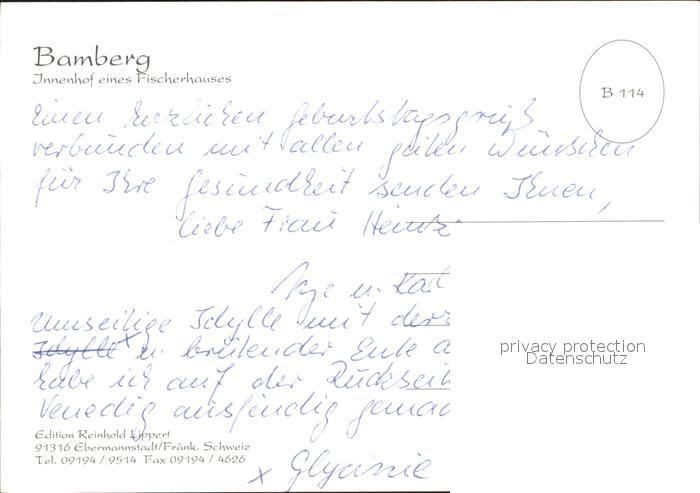 Bamberg
Innenhof eines Fischerhauses
B 114
Einen herzlichen Geburtstagsgruß
verbunden mit allen guten Wünschen
für Ihre Gesundheit senden Ihnen,
liebe Frau
u.
Umseitige Idylle mit
Idylle x u. brütender Ente
habe ich auf der
Venedig ausfindig
privacy protection
Datenschutz
Edition Reinhold Lippert
91316 Ebermannstadt/Fränk. Schweiz
Tel. 09194 / 9514 Fax 09194 / 4626
x Glyzinie